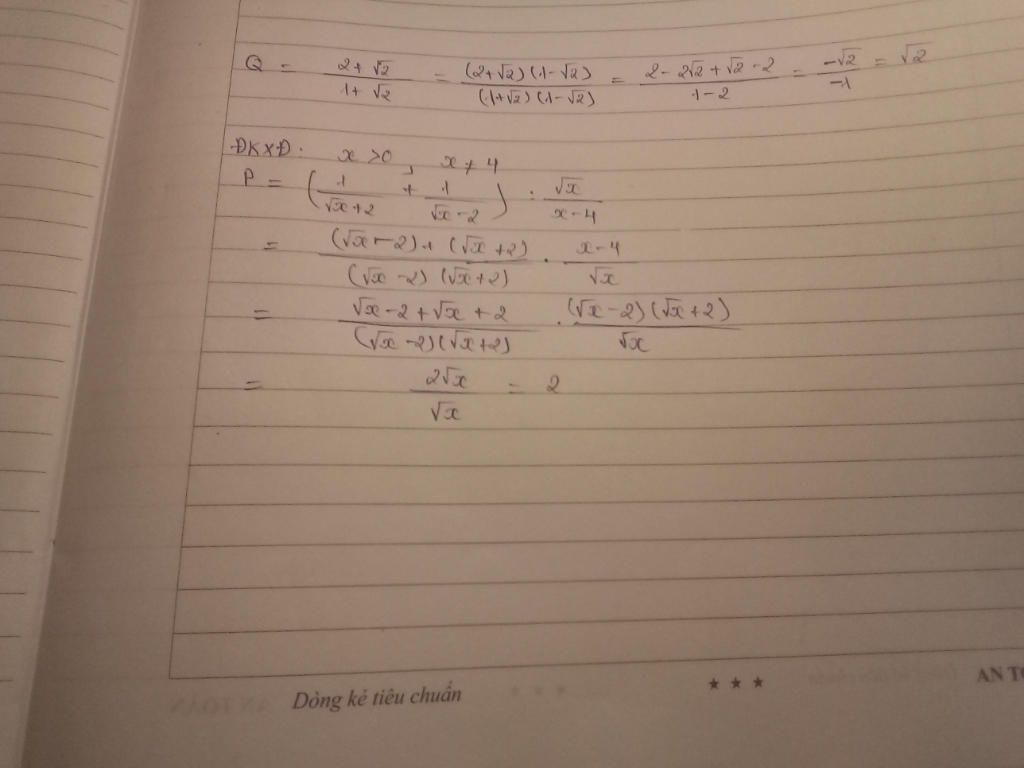 Q = \frac{2+\sqrt{2}}{1+\sqrt{2}} = \frac{(2+\sqrt{2})(1-\sqrt{2})}{(1+\sqrt{2})(1-\sqrt{2})} = \frac{2-2\sqrt{2}+\sqrt{2}-2}{1-2} = \frac{-\sqrt{2}}{-1} = \sqrt{2}
ĐKXĐ: x > 0, x ≠ 4
P = \left(\frac{1}{\sqrt{x}+2} + \frac{1}{\sqrt{x}-2}\right) : \frac{\sqrt{x}}{x-4}
= \frac{(\sqrt{x}-2)+(\sqrt{x}+2)}{(\sqrt{x}-2)(\sqrt{x}+2)} \cdot \frac{x-4}{\sqrt{x}}
= \frac{\sqrt{x}-2+\sqrt{x}+2}{(\sqrt{x}-2)(\sqrt{x}+2)} \cdot \frac{(\sqrt{x}-2)(\sqrt{x}+2)}{\sqrt{x}}
= \frac{2\sqrt{x}}{\sqrt{x}} = 2
Dòng kẻ tiêu chuẩn ★ ★ ★ AN TO